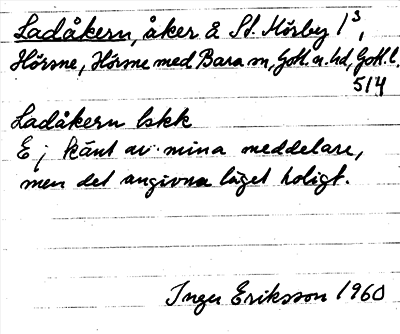 Ladåkern, åker å St. Hörby 1³,
Hörsne, Hörsne med Bara sn, Gotl. n. hd, Gotl. l.
5/4
Ladåkern bskk
Ej känt av mina meddelare,
men det angivna läget troligt.
Inger Eriksson 1960